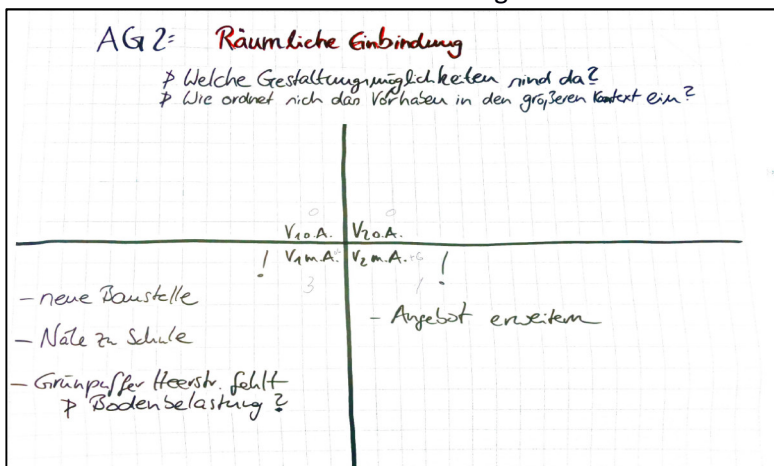 AG 2: Räumliche Einbindung
Welche Gestaltungsmöglichkeiten sind da?
Wie ordnet sich das Vorhaben in den größeren Kontext ein?
0 0
V1 o.A. V2 o.A.
! V1 m.A. V2 m.A. !
3 1
- neue Baustelle
- Angebot erweitern
- Nähe zu Schule
- Grünpuffer Heerstr. fehlt
Bodenbelastung?